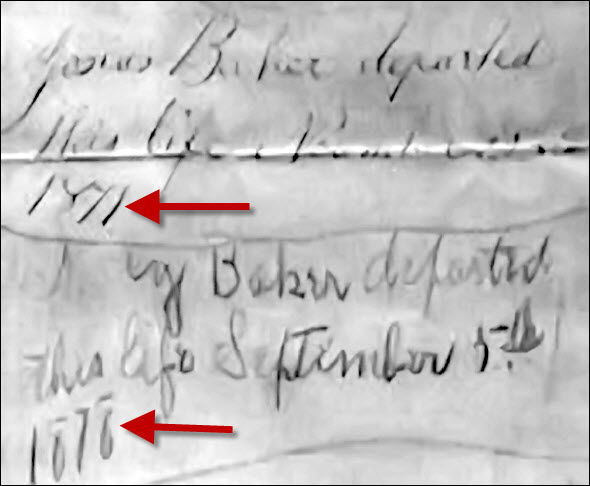 Josias Baker departed
this life
1871
Baker departed
this life September 5th
1878